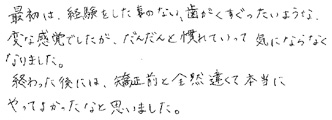 最初は、経験をした事のない、歯がくすぐったいような、
変な感覚でしたが、だんだんと慣れていって 気にならなく
なりました。
終わった後には、矯正前と全然違くて本当に
やってよかったなと思いました。